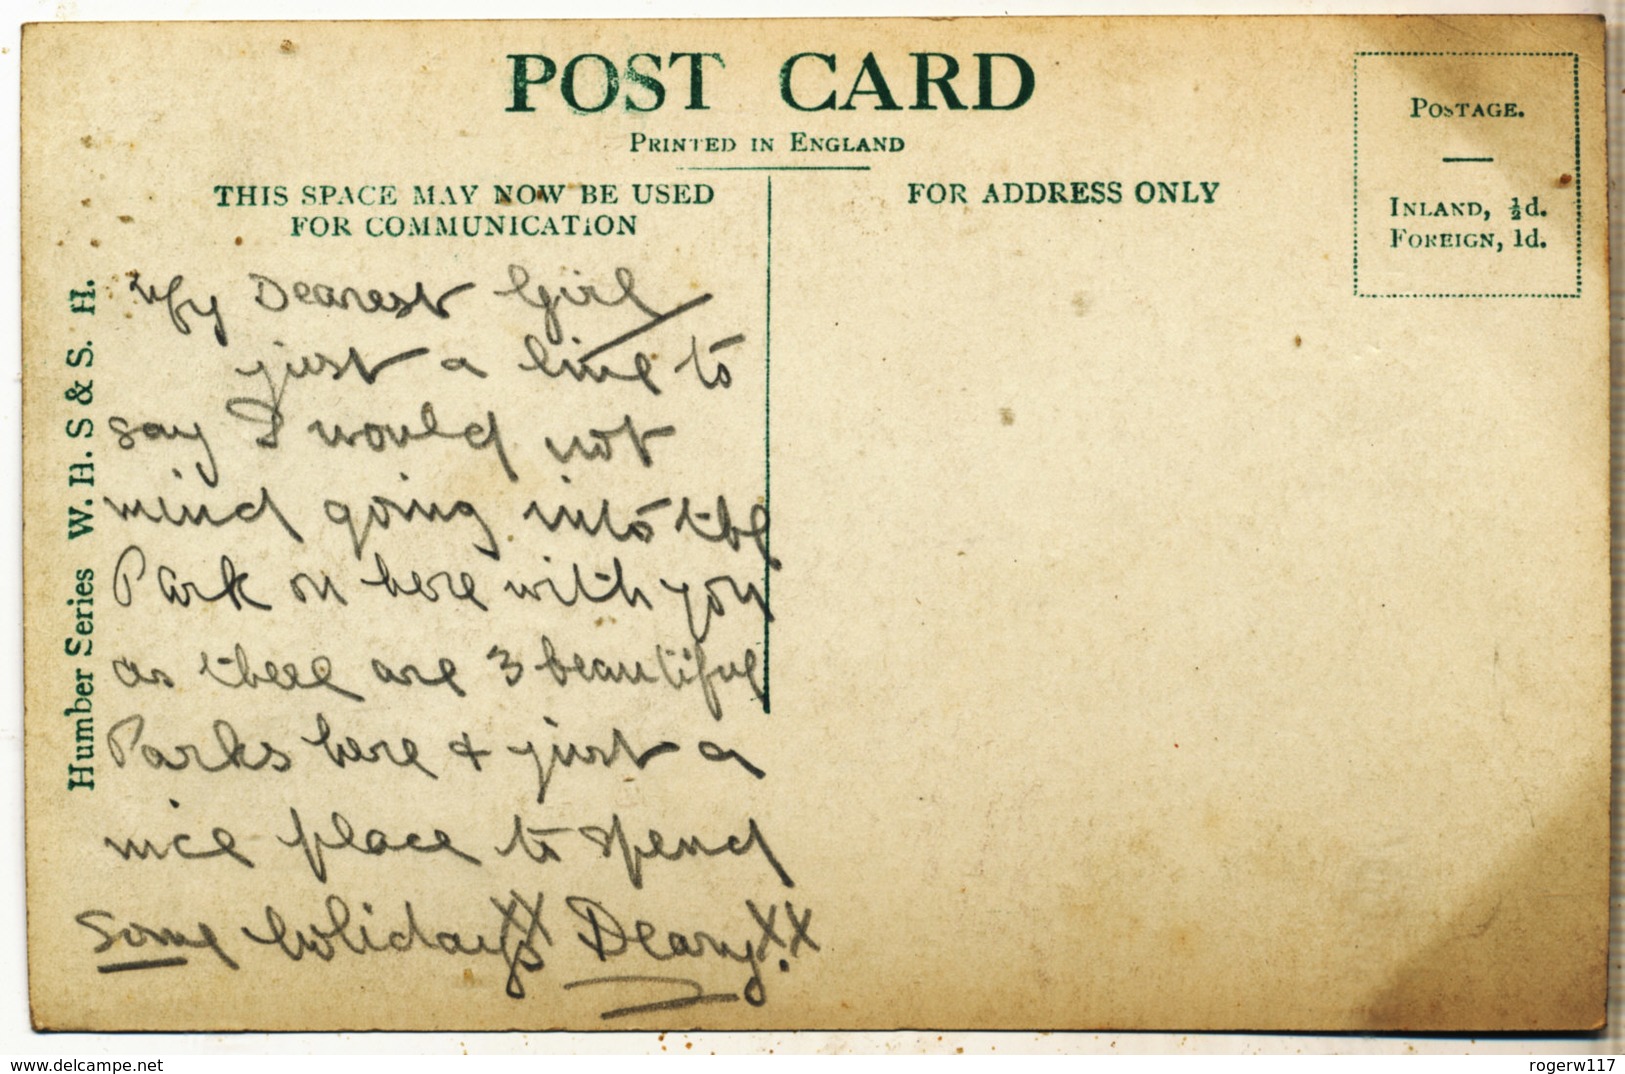 POST CARD
PRINTED IN ENGLAND
THIS SPACE MAY NOW BE USED
FOR COMMUNICATION
FOR ADDRESS ONLY
POSTAGE.
INLAND, ½d.
FOREIGN, 1d.
Humber Series W. H. S & S. H.
My Dearest Girl
just a line to
say I would not
mind going into the
Park on here with you
as there are 3 beautiful
Parks here & just a
nice place to spend
some holidays XX Deary XX.
www.delcampe.net
rogerw117